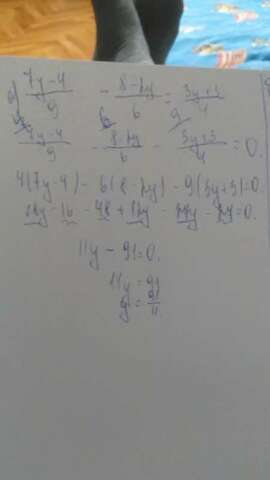 б) (7y-4)/9 - (8-2y)/6 = (3y+3)/4
(7y-4)/9 - (8-2y)/6 - (3y+3)/4 = 0.
4(7y-4) - 6(8-2y) - 9(3y+3)=0.
28y - 16 - 48 + 12y - - =0.
11y - 91=0.
11y = 91
y = 91/11